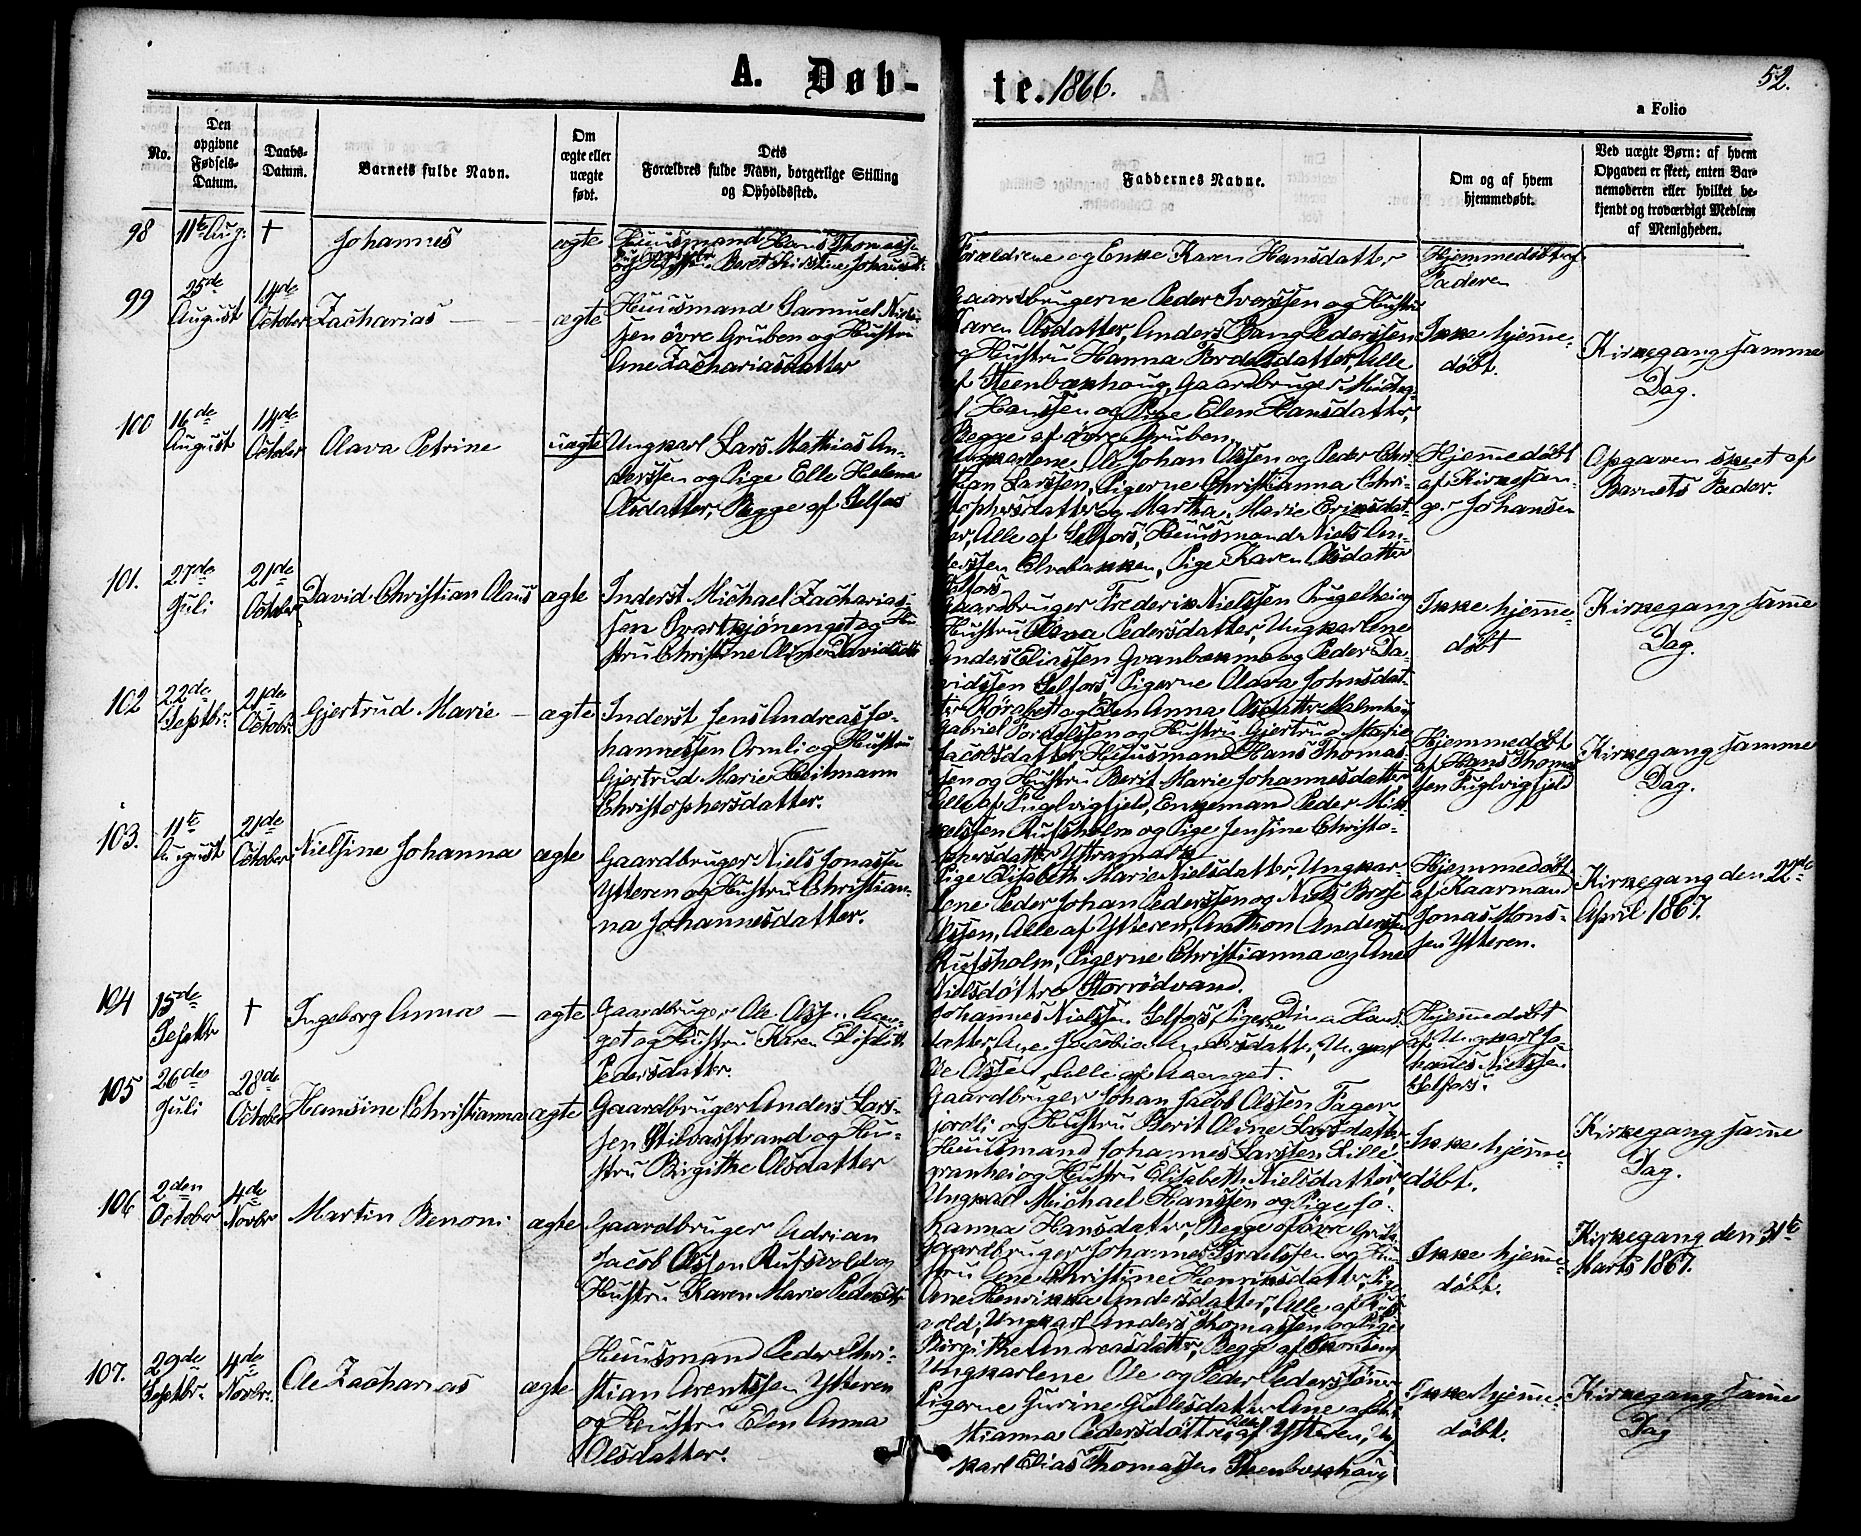 A. Døb-
te. 1866.
52.
a Folio
No.
Den
opgivne
Fødsels-
Datum.
Daabs-
Datum.
Barnets fulde Navn.
Om
ægte eller
uægte
født.
Dets
Forældres fulde Navn, borgerlige Stilling
og Opholdssted.
Faddernes Navne.
Om og af hvem
hjemmedøbt.
Ved uægte Børn: af hvem
Opgaven er skeet, enten Bar-
nemoderen eller hvilket be-
kjendt og troværdigt Medlem
af Menigheden.
98
11te Aug:
†
Johannes
ægte
Huusmand Hans Thomess:
og Hustru Beret Kirstine Johansdt:
Forældrene og Enke Karen Hansdatter
Hjemmedøbt af
Faderen
99
25de
August
14de
October
Zacharias
ægte
Huusmand Samuel
sen övre Gruben og Hustru
Ane Zachariasdatter
Gaardbrugerne Peder Iverssen og Hustru
Karen Olsdatter, Anders Bang Pederssen
og Hustru Hanna Bordelsdatter, Alle
af Steenbækhaug, Gaardbruger
Hanssen og Pige Elen Hansdatter,
Begge af övre Gruben.
Ikke hjemme-
døbt.
Kirkegang samme
Dag.
100
16de
August
14de
October
Olava Petrine
uægte
Ungkarl Lars Mathias An-
derssen og Pige Elle Helena
Olsdatter, Begge af Selfors
Ungkarlene Ole Johan Olssen og Peder Chri-
stian Larssen, Pigerne Christianna Chri-
stophersdatter og Martha Marie Eriksdat-
ter, Alle af Selfors, Huusmand Niels An-
derssen Elvebakken, Pige Karen Olsdatter
Selfors
Hjemmedøbt
af Kirkesan-
ger Johansen
Opgaven skeet af
Barnets Fader.
101.
27de
Juli
21de
October
David Christian Olaus
ægte
Inderst Michael Zacharias-
sen Svartkjönenget og Hu-
stru Christine Oline Davidsdt
Gaardbruger Frederik Nielssen Fugelhei og
Hustru Elena Pedersdatter, Ungkarlene
Anders Eliassen Granbekmo og Peder Da-
vidssen Selfors, Pigerne Olava Johnsdat-
ter og Elen Anna Olsdatter
Ikke hjemme-
døbt
Kirkegang samme
Dag.
102
22de
Septbr:
21de
Octobr:
Gjertrud Marie
ægte
Inderst Jens Andreas Jo-
hannessen Ormli og Hustru
Gjertrud Marie Heitmann
Christophersdatter.
Gabriel Tordelssen og Hustru Gjertrud Marie
Jacobsdatter, Huusmand Hans Thomas-
sen og Hustru Berit Marie Johannesdatter
Alle af Fuglvigfjeld, Enkemand Peder Mik-
kelssen Rufsholm og Pige Jensine Christo-
phersdatter Yttramark
Hjemmedøbt
af Hans Thomas-
sen Fuglvigfjeld
Kirkegang samme
Dag.
103.
11te
August
21de
October
Nielsine Johanna
ægte
Gaardbruger Niels Jonassen
Ytteren og Hustru Christian-
na Johannesdatter.
Pige Elisabeth Marie Nielsdatter, Ungkar-
lene Peder Johan Pederssen og Niels Brose
Olssen, Alle af Ytteren, Anthon Anderssen
Rufsholm, Pigerne Christianna og Ane
Nielsdøttre Storrödvand.
Hjemmedøbt
af Kaarmand
Jonas Mons-
sen Ytteren.
Kirkegang den 22de
April 1867.
104
15de
Septbr
†
Ingeborg Anna
ægte
Gaardbruger Ole Olssen
get og Hustru Karen
Pedersdatter.
Johannes Nielssen Selfors, Pigerne Dina Hans-
datter, Ane Jacobia Andersdatter, Ungkarl
Ole Olssen, Alle af
Hjemmedøbt
af Ungkarl Jo-
hannes Nielssen
Selfors.
105
26de
Juli
28de
October
Hansine Christianna
ægte
Gaardbruger Anders Lars-
sen Stilvasstrand og Hu-
stru Birgithe Olsdatter
Gaardbruger Johan Jacob Olssen Fager-
jordli og Hustru Berit Oline Larsdatter
Huusmand Johannes Larssen Lille
granhei og Hustru Elisabeth Nielsdatter,
Ungkarl Michael Hanssen og Pige Jo-
hanna Hansdatter, Begge af övre Grub:
Ikke hjemme-
døbt.
Kirkegang samme
Dag.
106
2den
October
4de
Novbr
Martin Benoni
ægte
Gaardbruger Adrian
Jacob Olssen Rufsvold og
Hustru Karen Marie Pedersdt
Gaardbruger Johannes Tordelssen og Hu-
stru Ane Christine Henriksdatter, Pige
Ane Henrikka Andersdatter, Alle af Rufs-
vold, Ungkarl Anders Thomassen og Pige
Birgithe Andreasdatter, Begge af
Ikke hjemme-
døbt.
Kirkegang den 31te
Marts 1867.
107.
29de
Septbr.
4de
Novbr.
Ole Zacharias
ægte
Huusmand Peder Chri-
stian Arentssen Ytteren
og Hustru Elen Anna
Olsdatter.
Ungkarlene Ole og Peder Pederssønner
Pigerne Gurine Gullesdatter, Ane
stianna Pedersdøttre, Alle af Ytteren, Ung-
karl Elias Thomassen Steenbækhaug
Ikke hjemme-
døbt.
Kirkegang samme
Dag